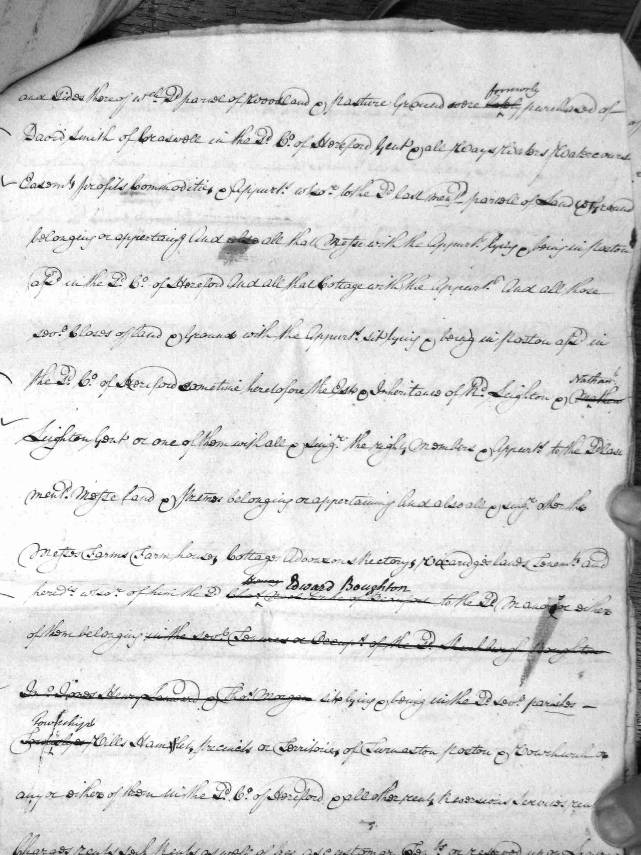 and sides thereof wch sd parcel of Woodland & pasture Ground were formerly purchased of
David Smith of Craswell in the sd Co. of Hereford Gent & all Ways Waters Watercourses
Easemts profits Commodities & Appurts whsor to the sd last mend parcell of Land & Ground
belonging or appertaing And also all that Messe with the Appurts lying & being in poston
afsd in the sd Co. of Hereford And all that Cottage with the Appurts And all those
sevl Closes of land & Ground with the Appurts sit lying & being in poston afsd in
the sd Co. of Hereford sometime heretofore the Este & Inheritance of Rd Leighton & Nathanl
Leighton Gent or one of them with all & singr the rights Members & Appurts to the sd last
mentd Messe land & prmes belonging or appertaining And also all & singr other the
Messes Farms Farmhouses Cottages Advowson Rectory Vicaridge lands Tenemts and
heredts whsor of him the sd Edward Boughton to the sd Manor or either
of them belonging in the sevl Tenures or Occupts of the sd Boughton
Jones & Thos Morgan sit lying & being in the sd sevl parishes
Townships Vills Hamlets, precincts or Territories of Turnaston poston & Vowchurch or
any or either of them in the sd Co. of Hereford & all other rents Reversions Services
Charges rents seck Rents as well of